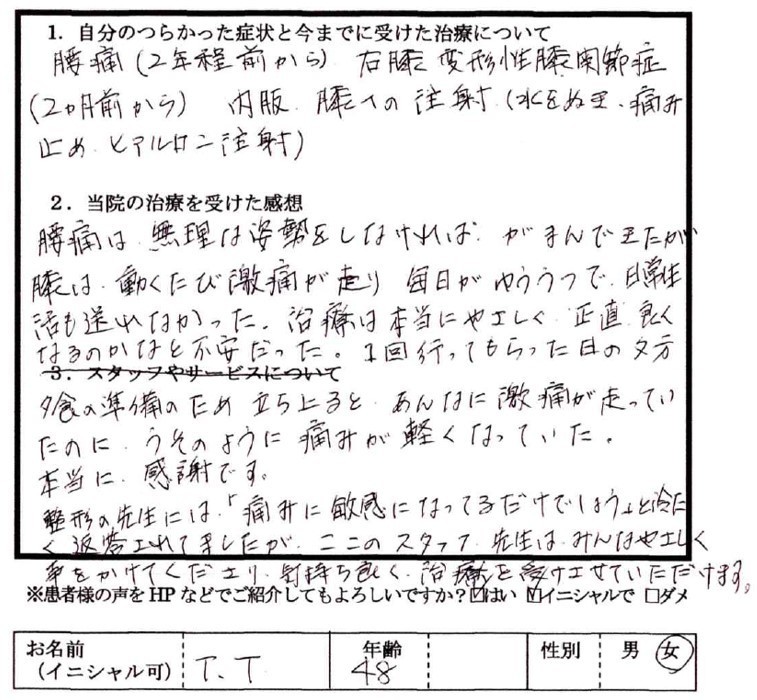 1．自分のつらかった症状と今までに受けた治療について
腰痛(2年程前から) 右膝 変形性膝関節症
(2ヵ月前から) 内服、膝への注射(水をぬき、痛み
止め、ヒアルロン注射)
2．当院の治療を受けた感想
腰痛は、無理は姿勢をしなければ、がまんできたが
膝は、動くたび激痛が走り 毎日がゆううつで、日常生
活も送れなかった。治療は本当にやさしく、正直、良く
なるのかなと不安だった。1回行ってもらった日の夕方
3．スタッフやサービスについて
夕食の準備のため 立ち上ると、あんなに激痛が走ってい
たのに、うそのように痛みが軽くなっていた。
本当に、感謝です。
整形の先生には、「痛みに敏感になってるだけでしょう」と冷た
く返答されてましたが、ここのスタッフ、先生は、みんなやさしく
声をかけてくださり、気持ち良く、治療を受けさせていただけます。
※患者様の声をHPなどでご紹介してもよろしいですか？☑はい ☑イニシャルで □ダメ
お名前 年齢 性別 男 女
（イニシャル可） T.T 48